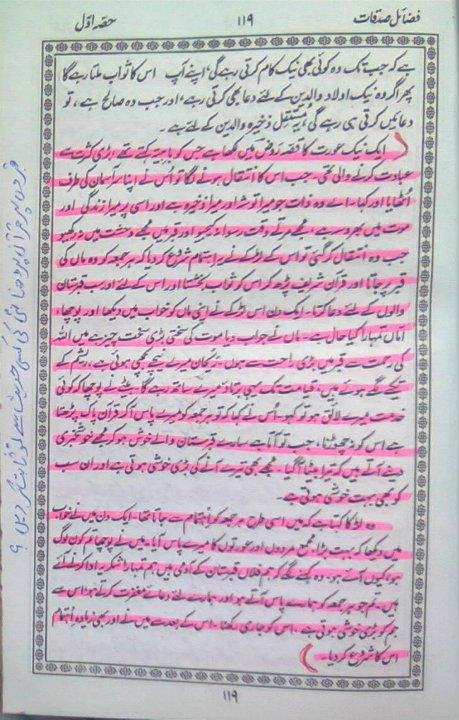 فضائل صدقات ۱۱۹ حصہ اوّل
ہے کہ جب تک وہ کوئی بھی نیک کام کرتی رہے گی، اپنے آپ اس کا ثواب ملتا رہے گا
پھر اگر وہ نیک اولاد والدین کے لئے دعا بھی کرتی رہے، اور جب وہ صالح ہے، تو
دعائیں کرتی ہی رہے گی، یہ مستقل ذخیرہ والدین کے لئے ہے۔
ایک نیک عورت کا قصہ روض میں لکھا ہے جس کو باہیہ کہتے تھے، بڑی کثرت سے
عبادت کرنے والی تھی۔ جب اس کا انتقال ہونے لگا تو اُس نے اپنا سر آسمان کی طرف
اُٹھایا اور کہا، اے وہ ذات جو میرا توشہ اور میرا ذخیرہ ہے اور اسی پر میرا زندگی اور
موت میں بھروسہ ہے، مجھے مرتے وقت رسوا نہ کیجیو اور قبر میں مجھے وحشت میں نہ رکھیو
جب وہ انتقال کر گئی تو اُس کے لڑکے نے یہ اہتمام شروع کر دیا کہ ہر جمعہ کو وہ ماں کی
قبر پر جاتا اور قرآن شریف پڑھ کر اُس کو ثواب بخشتا اور اُس کے لئے اور سب قبرستان
والوں کے لئے دعا کرتا۔ ایک دن اس لڑکے نے اپنی ماں کو خواب میں دیکھا اور پوچھا،
امّاں تمہارا کیا حال ہے۔ ماں نے جواب دیا موت کی سختی بڑی سخت چیز ہے، میں اللہ
کی رحمت سے قبر میں بڑی راحت سے ہوں، ریحان میرے نیچے بچھی ہوئی ہے، ریشم کے
تکیے لگے ہوئے ہیں، قیامت تک یہی برتاؤ میرے ساتھ رہے گا۔ بیٹے نے پوچھا کہ کوئی
خدمت میرے لائق ہو تو کہو، اُس نے کہا کہ تو ہر جمعہ کو میرے پاس آ کر قرآن پاک پڑھتا
ہے اس کو نہ چھوڑنا، جب تو آتا ہے سارے قبرستان والے خوش ہو کر مجھے خوشخبری
دینے آتے ہیں کہ تیرا بیٹا آ گیا۔ مجھے بھی تیرے آنے کی بڑی خوشی ہوتی ہے اور ان سب
کو بھی بہت خوشی ہوتی ہے۔
وہ لڑکا کہتا ہے کہ میں اسی طرح ہر جمعہ کو اہتمام سے جاتا تھا۔ ایک دن میں نے خواب
میں دیکھا کہ بہت بڑا مجمع مردوں اور عورتوں کا میرے پاس آیا۔ میں نے پوچھا تم کون لوگ
ہو، کیوں آئے ہو۔ وہ کہنے لگے کہ ہم فلاں قبرستان کے آدمی ہیں ہم تمہارا شکریہ ادا کرنے آئے
ہیں۔ تم جو ہر جمعہ کو ہمارے پاس آتے ہو اور ہمارے لئے دعائے مغفرت کرتے ہو، اس سے
ہم کو بڑی خوشی ہوتی ہے، اس کو جاری رکھنا، اس کے بعد سے میں نے اور بھی زیادہ اہتمام
اس کا شروع کر دیا۔
۱۱۹